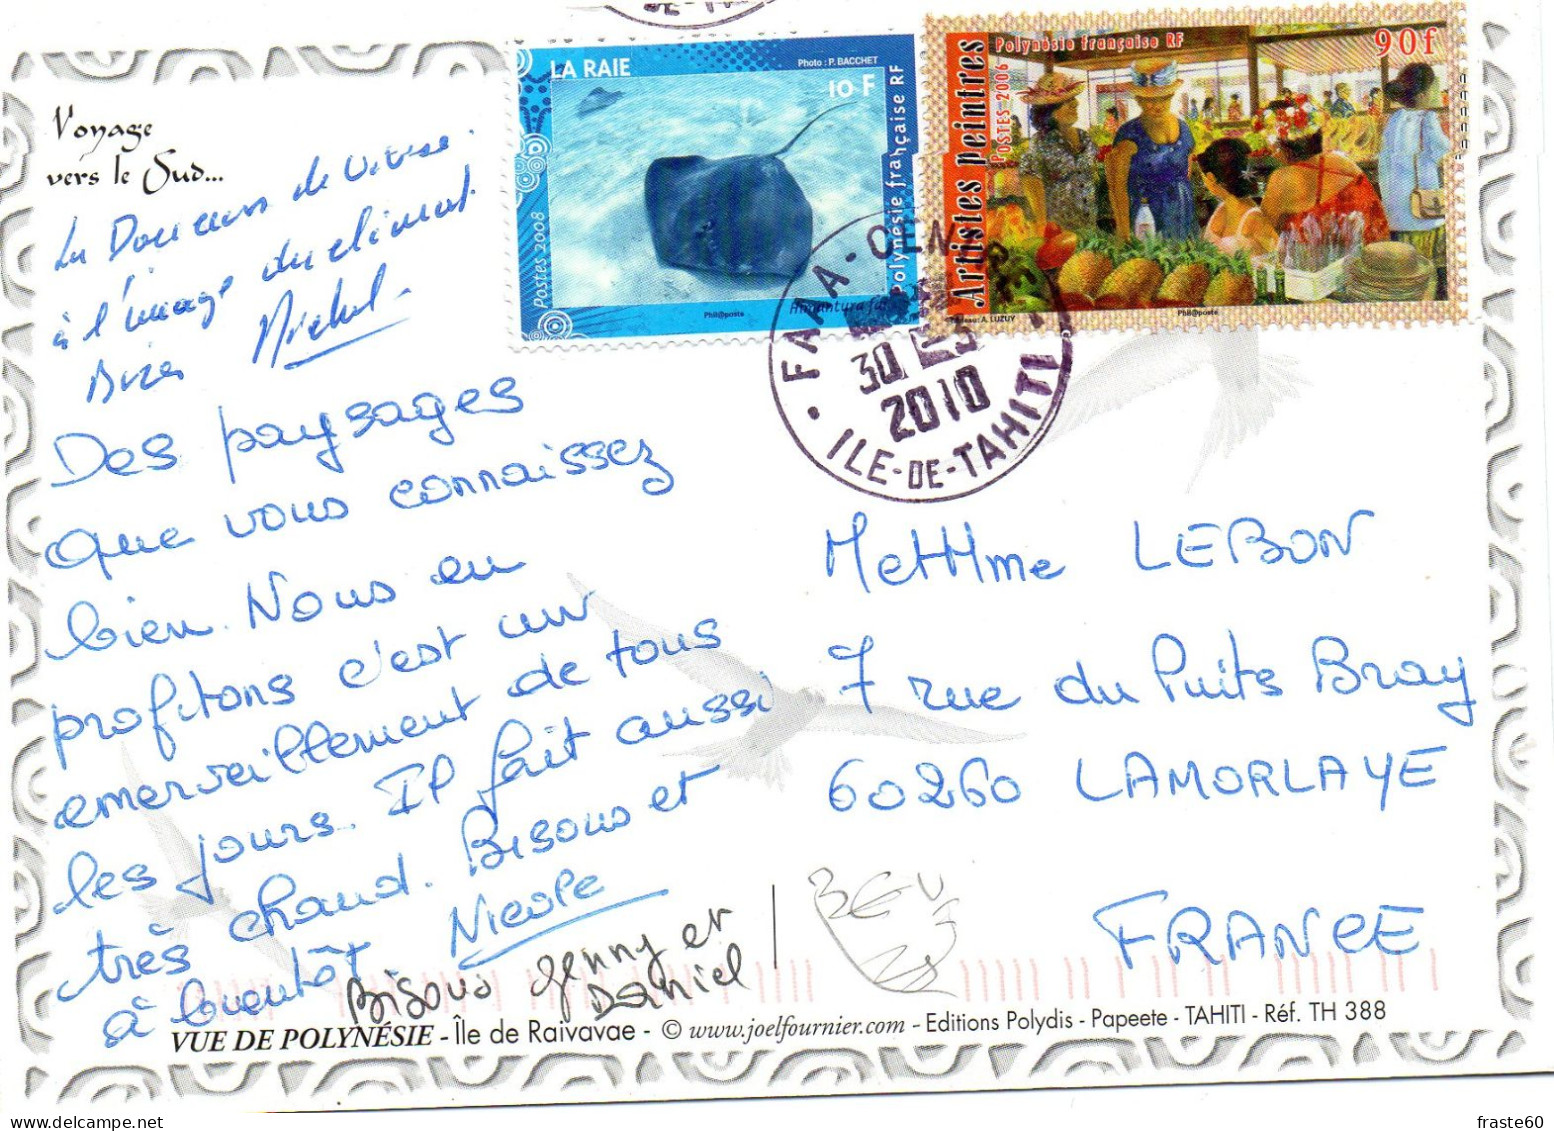 LA RAIE
Photo : P. BACCHET
10 F
Polynésie française RF
Postes 2008
Phil@poste
Polynésie française RF
90f
Artistes peintres
POSTES 2006
A. LUZUY
Phil@poste
30
2010
ILE-DE-TAHITI
Voyage
vers le Sud...
La Douceur de vivre
à l'image du climat
Bises Michel
Des paysages
que vous connaissez
bien. Nous en
profitons c'est un
emerveillement de tous
les jours. Il fait aussi
très chaud. Bisous et
à bientôt Nicole
Bisous Jenny et
Daniel
M et Mme LEBON
7 rue du Puits Bray
60260 LAMORLAYE
FRANCE
VUE DE POLYNÉSIE - Île de Raivavae - © www.joelfournier.com - Editions Polydis - Papeete - TAHITI - Réf. TH 388
fraste60